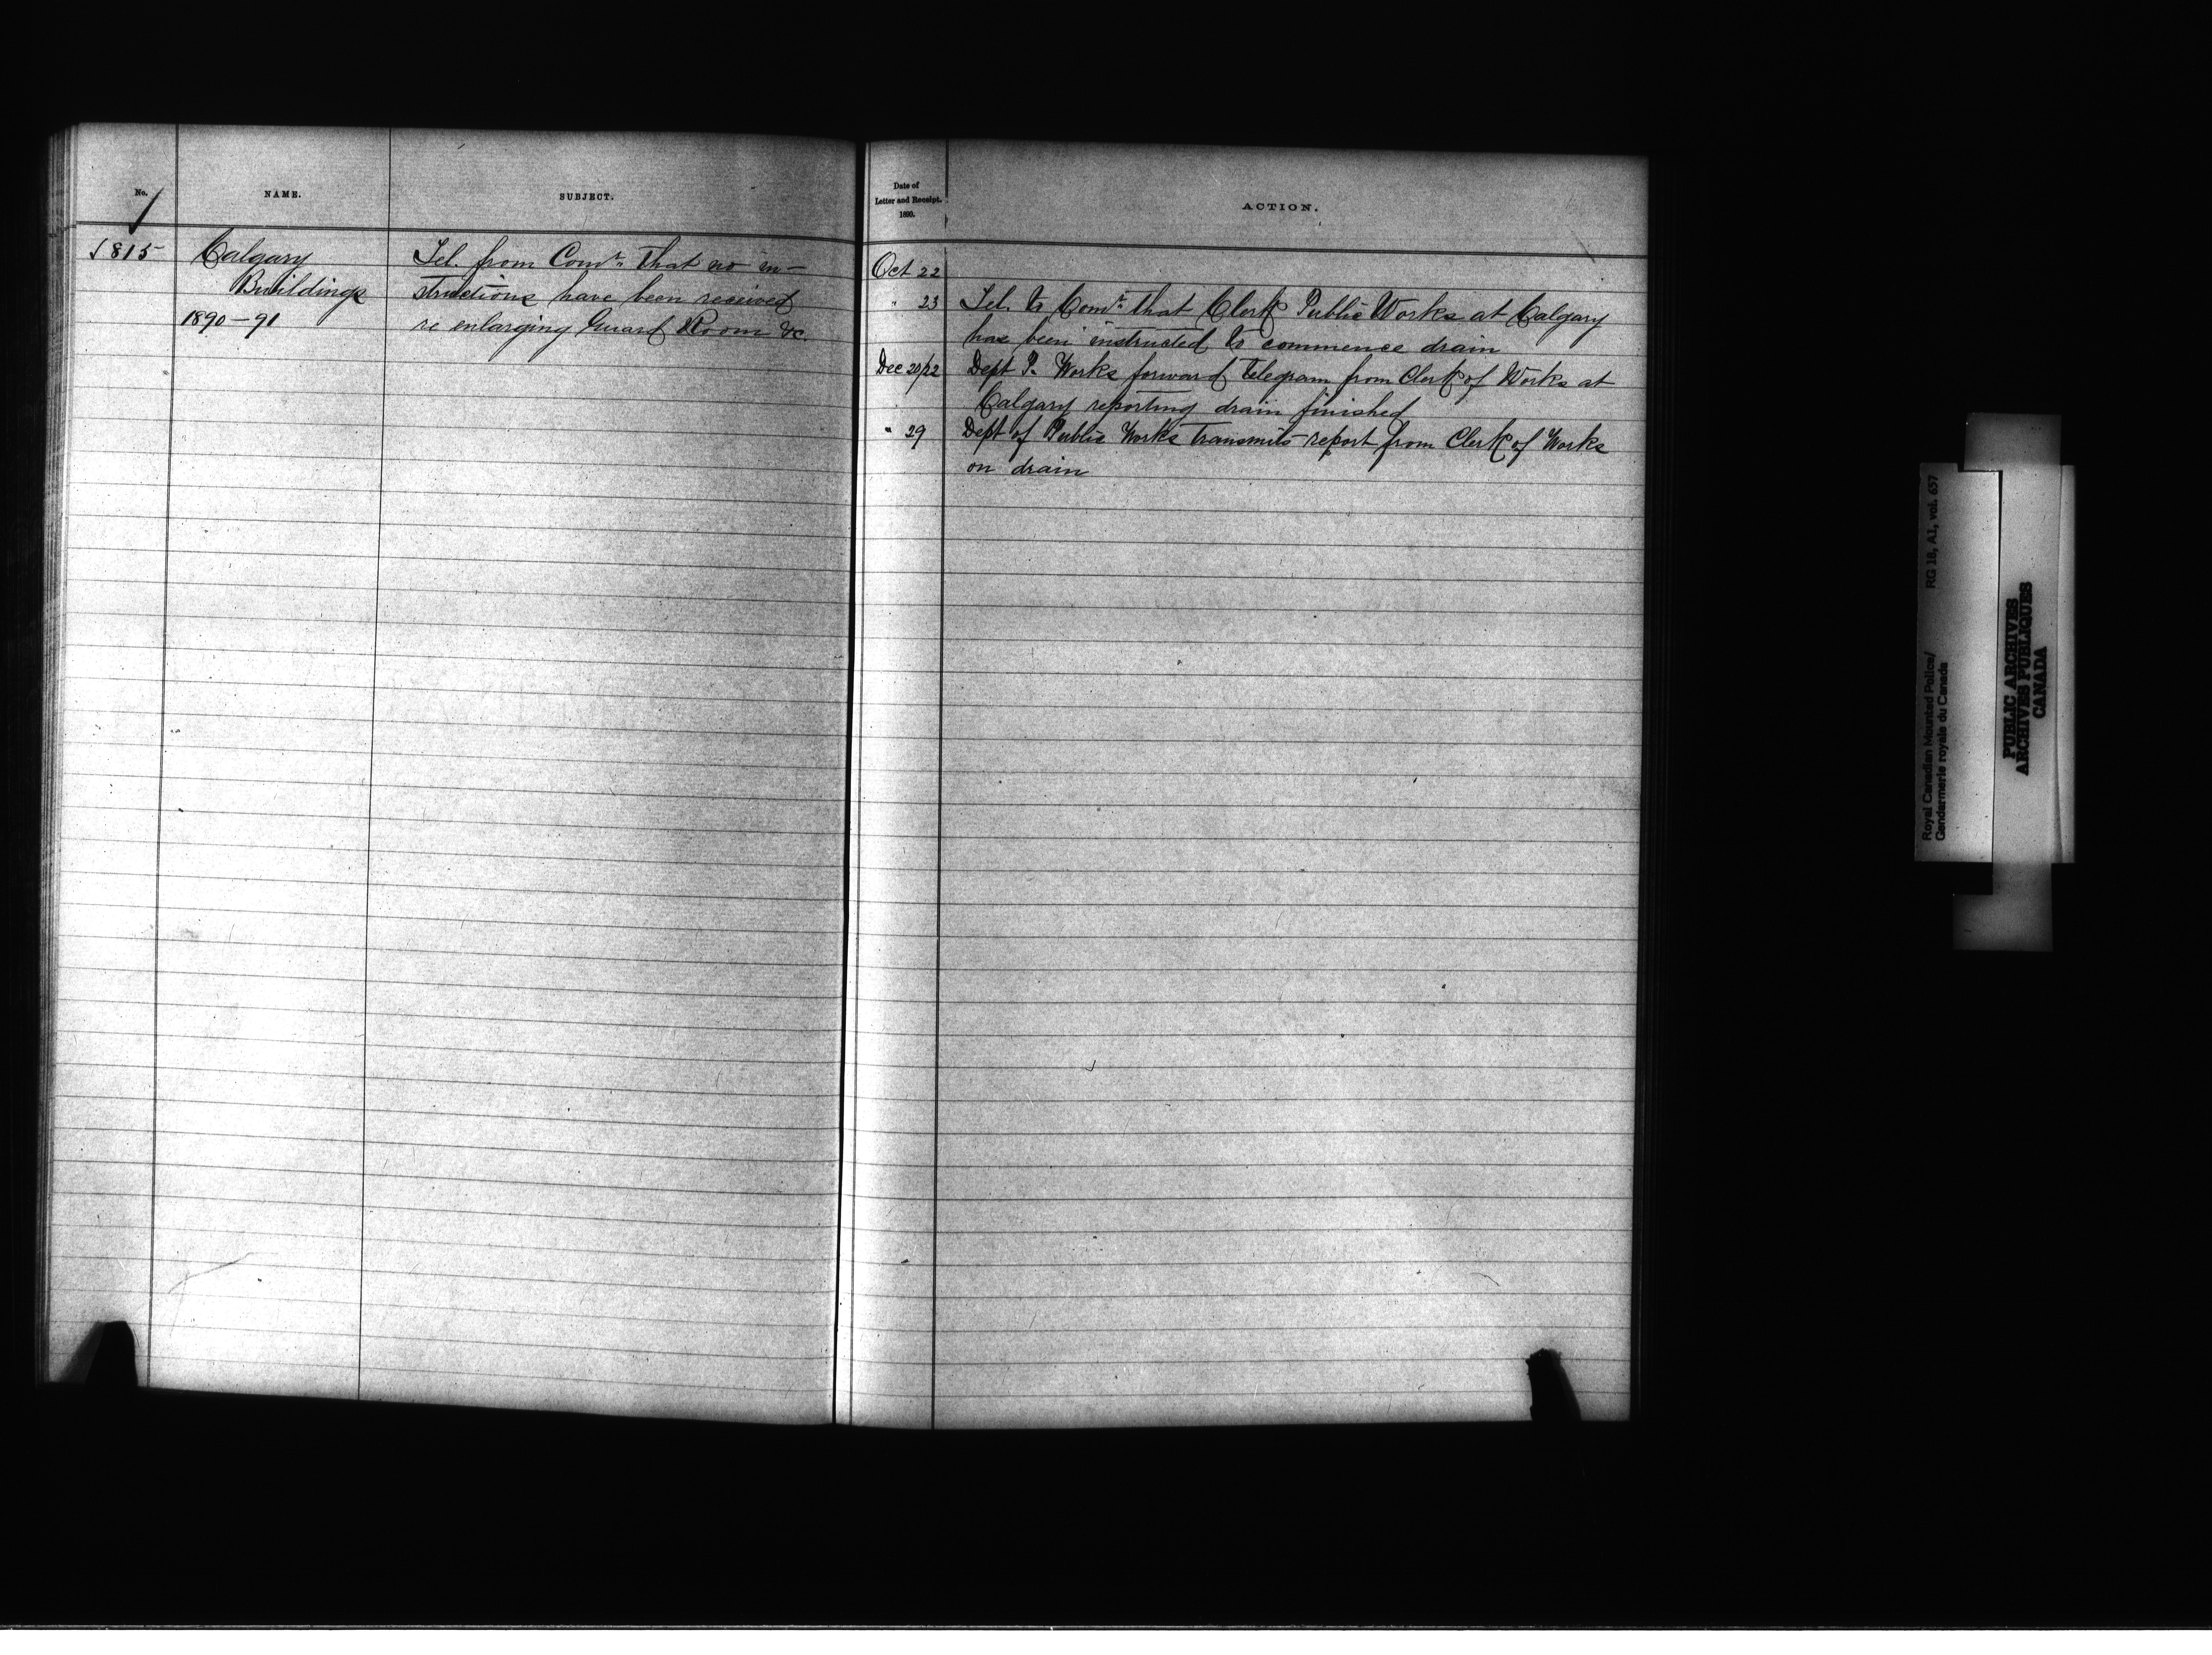 No.
NAME.
SUBJECT.
815
Calgary
Buildings
1890-91
Tel. from Comr. that no in-
structions have been received
re enlarging Guard Room &c.
Date of
Letter and Receipt.
1890.
ACTION.
Oct 22
" 23 Tel. to Comr. that Clerk Public Works at Calgary
has been instructed to commence drain
Dec 20/22 Dept P. Works forward telegram from Clerk of Works at
Calgary reporting drain finished
" 29 Dept of Public Works transmits report from Clerk of Works
on drain
Royal Canadian Mounted Police/ RG 18, A1, vol. 657
Gendarmerie royale du Canada
PUBLIC ARCHIVES
ARCHIVES PUBLIQUES
CANADA